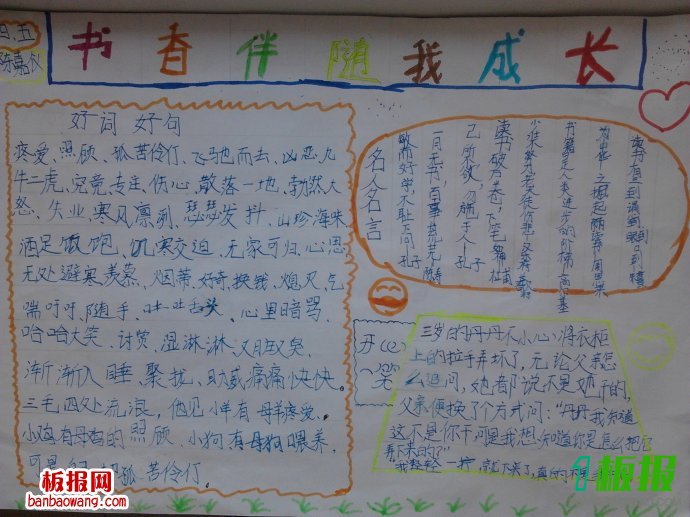 四.五
陈嘉
书香伴随我成长
好词 好句
疼爱、照顾、孤苦伶仃、飞驰而去、凶恶、九
牛二虎、究竟、专注、伤心、散落一地、勃然大
怒、失业、寒风凛冽、瑟瑟发抖、山珍海味
酒足饭饱、饥寒交迫、无家可归、心思
无处避寒、羡慕、烟蒂、好奇、换钱、熄灭、气
喘吁吁、随手、吐吐舌头、心里暗骂、
哈哈大笑、讨赏、湿淋淋、又脏又臭、
渐渐入睡、聚拢、助威、痛痛快快。
三毛四处流浪，他见小羊有母羊疼爱。
小鸡有母鸡的照顾，小狗有母狗喂养，
可是 孤苦伶仃。
读书有三到：谓心到、眼到、口到 朱熹
为中华之崛起而读书 周恩来
书籍是人类进步的阶梯 高尔基
少壮不努力，老大徒伤悲
读书破万卷，下笔如有神 杜甫
己所不欲，勿施于人 孔子
一日无书，百事荒芜 陈寿
敏而好学，不耻下问 孔子
名人名言
开心一笑
三岁的丹丹不小心将衣柜
上的拉手弄坏了，无论父亲怎
么追问，她都说不是她干的，
父亲便换了个方式问：“丹丹我知道
这不是你干的可是我想知道你是怎么把它
弄下来的？”
“我轻轻一拧，就下来了，真的不是
板报网
banbaowang.com
板报